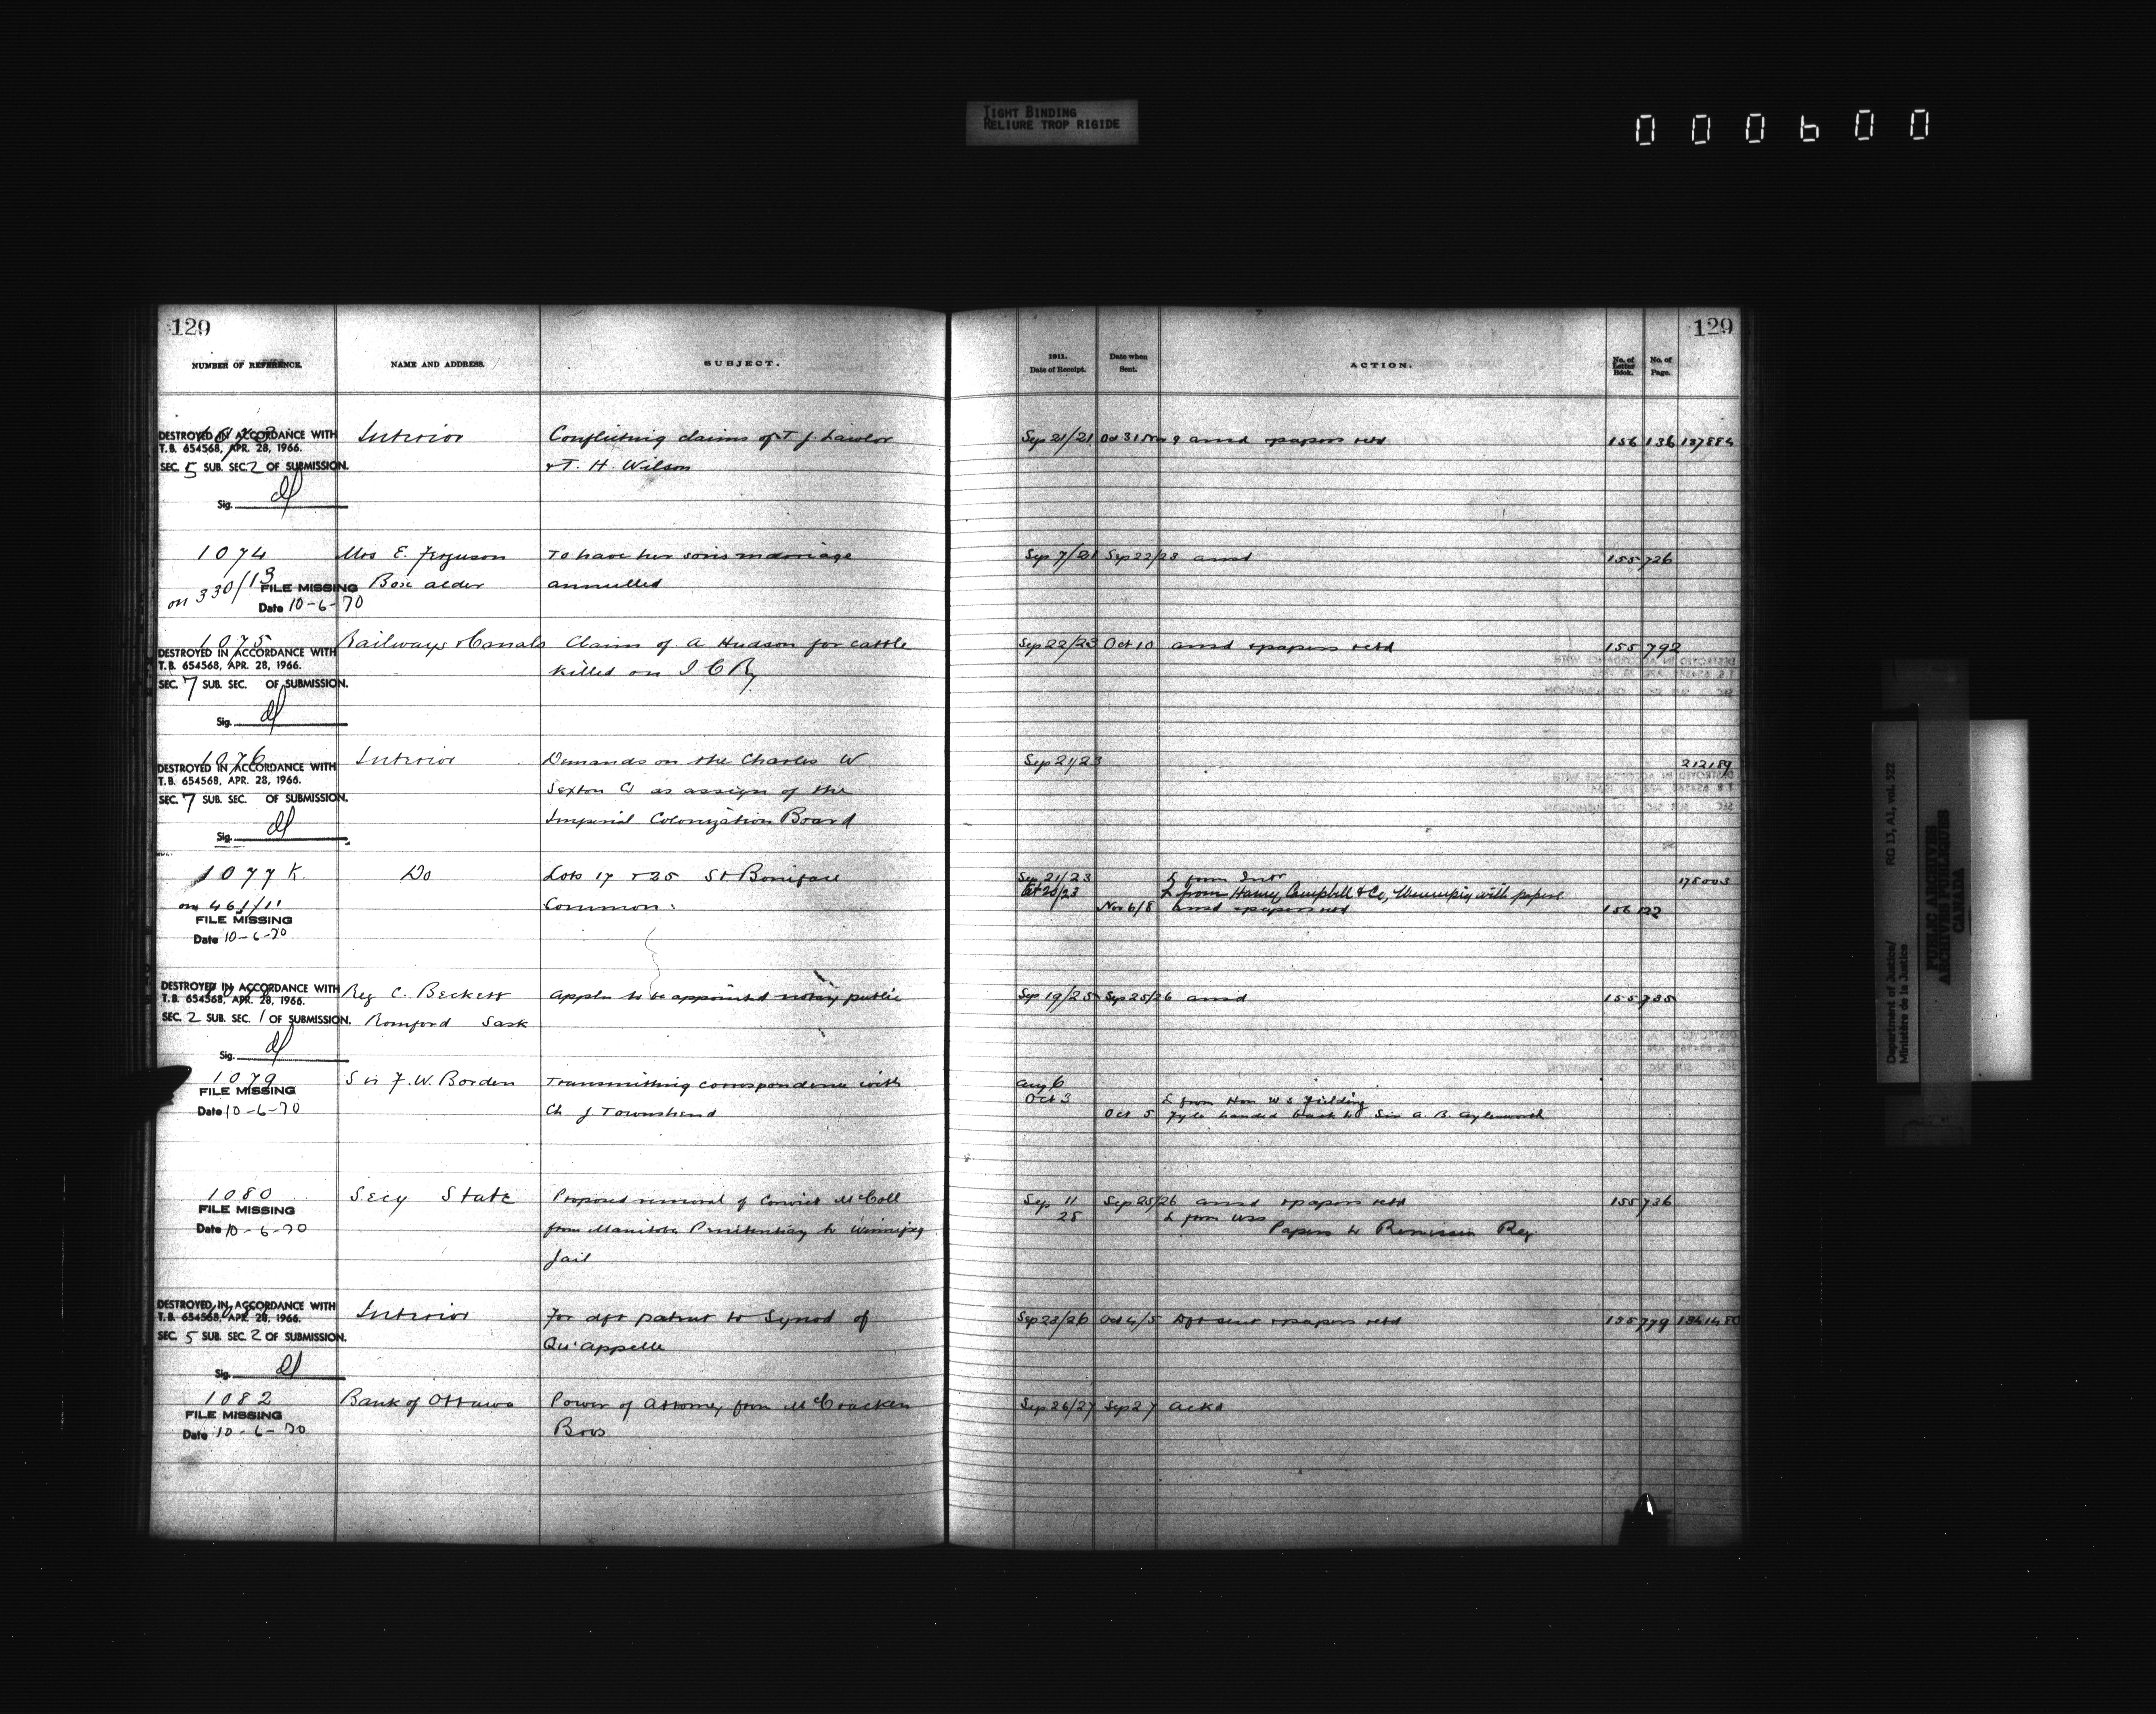 TIGHT BINDING
RELIURE TROP RIGIDE
000600
129
NUMBER OF REFERENCE.
NAME AND ADDRESS.
SUBJECT.
DESTROYED IN ACCORDANCE WITH
T.B. 654568, APR. 28, 1966.
SEC. 5 SUB. SEC. 2 OF SUBMISSION.
Sig.
Interior
Conflicting claims of T J Lawlor
& T. H. Wilson
1074
on 330/13
FILE MISSING
Date 10-6-70
Mrs E. Ferguson
Box alder
To have her sons marriage
annulled
1075
DESTROYED IN ACCORDANCE WITH
T.B. 654568, APR. 28, 1966.
SEC. 7 SUB. SEC. OF SUBMISSION.
Sig.
Railways & Canals
Claim of A Hudson for cattle
killed on I C Ry
1076
DESTROYED IN ACCORDANCE WITH
T.B. 654568, APR. 28, 1966.
SEC. 7 SUB. SEC. OF SUBMISSION.
Sig.
Interior
Demands on the Charles W
Sexton Co as assign of the
Imperial Colonization Board
1077 K
on 461/11
FILE MISSING
Date 10-6-70
Do
Lots 17 & 25 St Boniface
Common
DESTROYED IN ACCORDANCE WITH
T.B. 654568, APR. 28, 1966.
SEC. 2 SUB. SEC. 1 OF SUBMISSION.
Sig.
Reg C. Beckett
Romford Sask
Appln to be appointed notary public
1079
FILE MISSING
Date 10-6-70
Sir F. W. Borden
Transmitting correspondence with
Ch J Townshend
1080
FILE MISSING
Date 10-6-70
Secy State
Proposed removal of Convict McColl
from Manitoba Penitentiary to Winnipeg
Jail
DESTROYED IN ACCORDANCE WITH
T.B. 654568, APR. 28, 1966.
SEC. 5 SUB. SEC. 2 OF SUBMISSION.
Sig.
Interior
For dft patent to Synod of
Qu'appelle
1082
FILE MISSING
Date 10-6-70
Bank of Ottawa
Power of Attorney from McCracken
Bros
129
1911.
Date of Receipt.
Date when
Sent.
ACTION.
No. of
Letter
Book.
No. of
Page.
Sep 21/21 Oct 31 Nov 9 ansd & papers retd 156 136 137884
Sep 7/21 Sep 22/23 ansd 155 726
Sep 22/23 Oct 10 ansd & papers retd 155 792
Sep 21/23 212189
Sep 21/23 L from Intr 175003
Oct 20/23 L from Haney, Campbell & Co, Winnipeg with papers
Nov 6/8 ansd & papers retd 156 122
Sep 19/25 Sep 25/26 ansd 155 735
Aug 6
Oct 3 L from Hon W S Fielding
Oct 5 Fyle handed back to Sir A. B. Aylesworth
Sep 11 Sep 25/26 ansd & papers retd 155 736
25 L from USS
Papers to Remission Reg
Sep 23/26 Oct 4/5 Dft sent & papers retd 155 779
Sep 26/27 Sep 27 ackd
Department of Justice/ RG 13, A1, vol. 522
Ministère de la Justice
PUBLIC ARCHIVES
ARCHIVES PUBLIQUES
CANADA